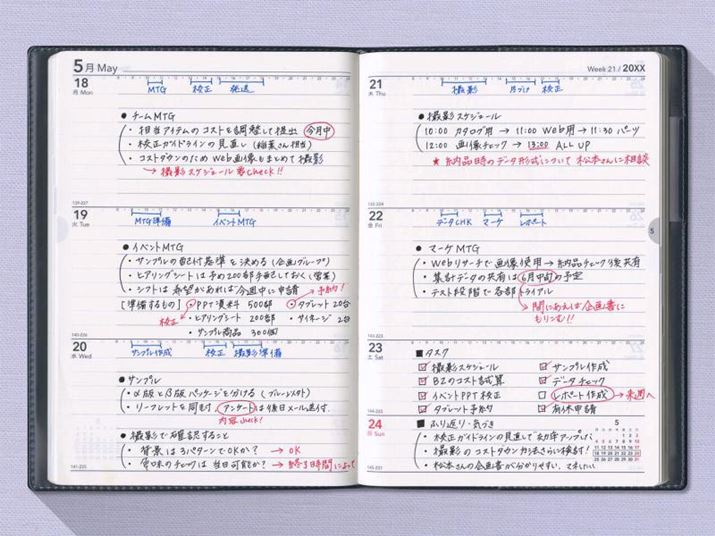 5月 May
18
月 Mon
MTG 校正 発送
● チームMTG
・担当アイテムのコストを調整して提出 今月中
・校正ガイドラインの見直し(稲葉さん担当)
・コストダウンのためWeb画像もまとめて撮影
→撮影スケジュール要check!!
139-227
19
火 Tue
MTG準備 イベントMTG
● イベントMTG
・サンプルの配付基準を決める(企画グループ)
・ヒアリングシートは予め200部手配しておく(営業)
・シフトは希望があれば今週中に申請
→予約!
[準備するもの] ・PPT資料 500部 ・タブレット 20台
校正 ・ヒアリングシート 200部 ・サイネージ 2台
・サンプル商品 300個
140-226
20
水 Wed
サンプル作成 校正 撮影準備
● サンプル
・α版とβ版パッケージを分ける(ブルーシスタ)
・リーフレットを同封、アンケートは後日メール送付.
内容check!
● 撮影で確認すること
・背景は3パターンでOKか? → OK
・のチェックは当日可能か? →終了時間によって
141-225
Week 21 / 20XX
21
木 Thu
撮影 片づけ 校正
● 撮影スケジュール
10:00 カタログ用 → 11:00 Web用 → 11:30 パーツ
12:00 画像チェック → 13:00 ALL UP
★納品時のデータ形式について 松本さんに相談
142-224
22
金 Fri
データCHK マーケ レポート
● マーケMTG
・Webリサーチで画像使用→納品チェック後共有
・集計データの共有は6月中旬の予定
・テスト段階で各部トライアル
→間にあえば企画書にもりこむ!!
143-223
23
土 Sat
■タスク
☑撮影スケジュール ☑サンプル作成
☑B2のコスト試算 ☑データチェック
☑イベントPPT校正 □レポート作成→来週へ
☑タブレット予約 ☑有休申請
144-222
24
日 Sun
■ふり返り・気づき
・校正ガイドラインの見直しで効率アップしてた
・撮影のコストダウン方法さらに検討!
・松本さんの企画書が分かりやすい。マネしたい
145-221
5